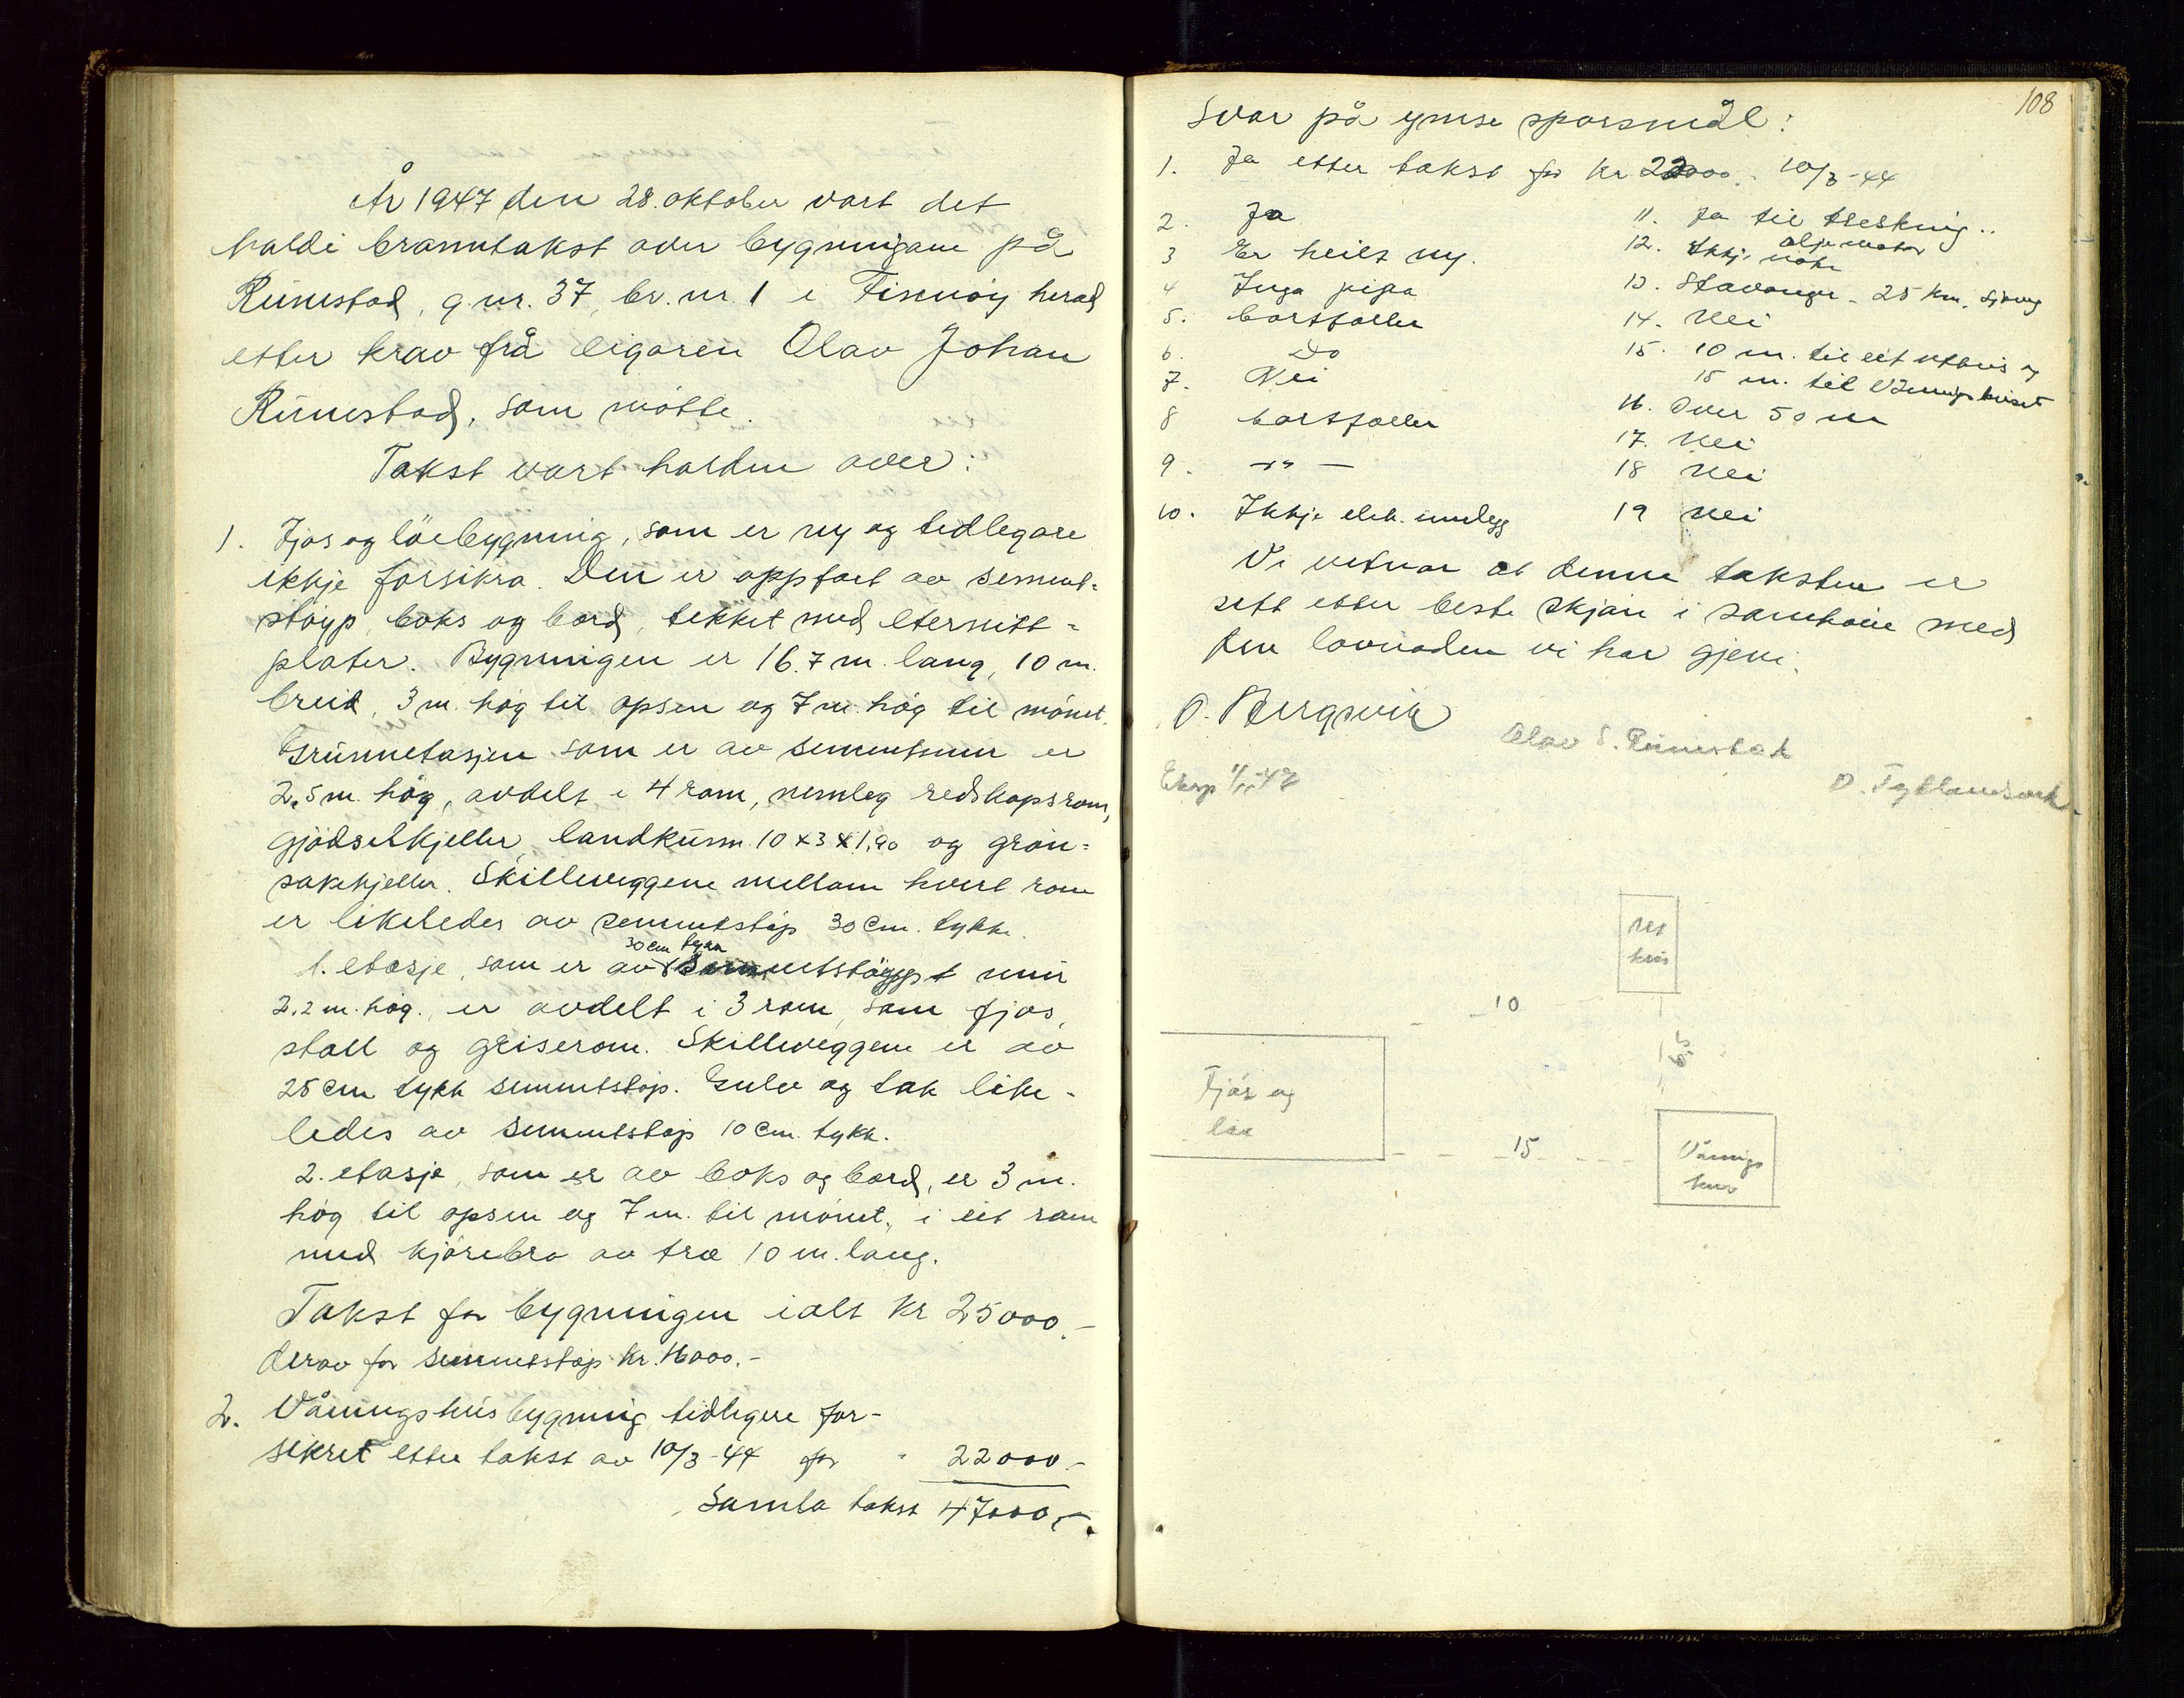 År 1947 den 28. oktober vart det
haldi branntakst over bygningane på
Rimestad, g.nr. 37, br.nr. 1 i Finnøy herad
etter krav frå eigaren Olav Johan
Rimestad, som møtte.
Takst vart halden over:
1. Fjos og löebygning, som er ny og tidlegare
ikkje forsikra. Den er oppført av sement-
støyp, boks og bord, tekket med eternitt-
plater. Bygningen er 16.7 m. lang, 10 m.
breid, 3 m. høg til opsen og 7 m. høg til mønet.
Grunnetasjen som er av sementmur er
2.5 m. høg, avdelt i 4 rom, nemleg redskapsrom,
gjødselkjeller, landkum 10 x 3 x 1,90 og grøn-
sakkjeller. Skilleveggene mellom hvert rom
er likeledes av sementstøp 30 cm. tykk.
30 cm tykk
1. etasje, som er av sementstøypt mur
2.2 m. høg., er avdelt i 3 rom, som fjos,
stall og griserom. Skilleveggene er av
25 cm tykk sementstøp. Gulv og tak like-
ledes av sementstøp 10 cm. tykk.
2. etasje, som er av boks og bord, er 3 m.
høg til opsen og 7 m. til mønet, i eit rom
med kjørebro av tre 10 m. lang.
Takst for bygningen ialt kr 25000.-
derav for sementstøp kr. 16000.-
2. Våningshusbygning tidligere for-
sikret etter takst av 10/3-44 for " 22000.-
Samla takst 47000,-.
108
Svar på ymse spørsmål:
1. Ja etter takst for kr 22000.- 10/3-44
2. Ja
3 Er heilt ny.
4 Inga pipa
5. bortfaller
6. Do
7. Nei
8 bortfaller
9. -"-
10. Ikkje elek. innlegg
11. Ja til tresking..
oljemotor
12. Ikkje noke
13. Stavanger - 25 km. sjøveg
14. Nei
15. 10 m. til eit uthus og
15 m. til Våningshuset
16. Over 50 m
17. Nei
18 Nei
19 Nei
Vi vitnar at denne taksten er
sett etter beste skjøn i samhøve med
den lovnaden vi har gjevi.
O. Bergsvik
Olav S. Rimestad
Eksp 1/11-47
ret
hus
10
15
Fjós og
løe
15
Vånings
hus